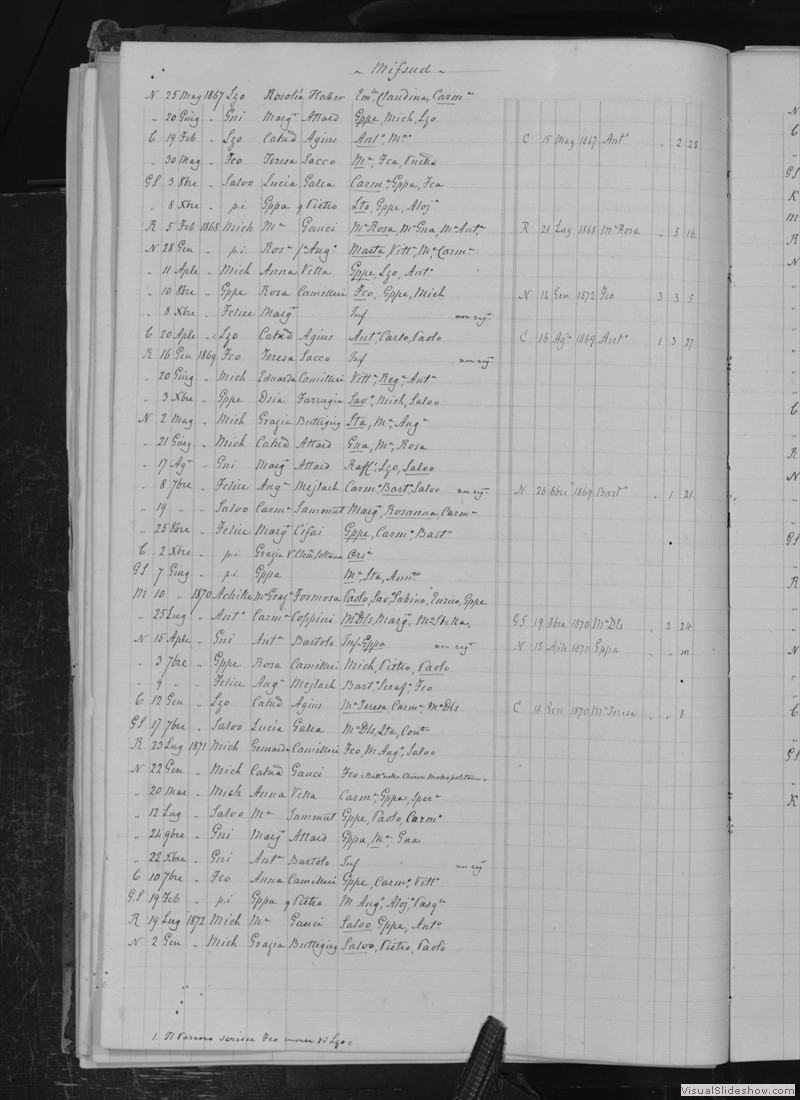 ~ Mifsud ~
N 25 Mag 1867 Lzo Rosolia Haber Em. Claudina, Carmª
„ 20 Giug „ Gni Margª Attard Gppe, Mich, Lzo
C 19 Feb „ Lzo Catnã Agius Antº, Mª C 15 Mag 1867 Antº „ 2 28
„ 30 Mag „ Fco Teresa Sacco Mª, Fca, Pietro
GS 3 8bre „ Salvo Lucia Galea Carmª, Gppa, Fca
„ 8 Xbre „ p.i. Gppa q Pietro Sta, Gppe, Alojº
R 5 Feb 1868 Mich Mª Gauci Mª Rosa, Mª Gna, Mª Antª R 21 Lug 1868 Mª Rosa „ 5 16
N 28 Gen „ p.i. Rosª Angª Marta, Vittª, Mª Carmª
„ 11 Aple „ Mich Anna Vella Gppe, Lzo, Antº
„ 10 8bre „ Gppe Rosa Camilleri Fco, Gppe, Mich N 14 Gen 1872 Fco 3 3 5
„ 8 Xbre „ Felice Margª Inf non regª
C 20 Aple „ Lzo Catnã Agius Antº, Carlo, Paolo C 16 Agº 1869 Antº 1 3 27
R 16 Gen 1869 Fco Teresa Sacco Inf non regª
„ 20 Giug „ Mich Eduarda Camilleri Vittª, Regª, Antª
„ 3 Xbre „ Gppe Dsia Farrugia Savº, Mich, Salvo
N 2 Mag „ Mich Grazia Buttigieg Sta, Mª, Angª
„ 21 Giug „ Mich Catnã Attard Gna, Mª, Rosa
„ 17 Agº „ Gni Margª Attard Raffº, Lzo, Salvo
„ 8 7bre „ Felice Angª Mejlach Carmº, Bartº, Salvo non regª N 28 8bre 1869 Bartº „ 1 21
„ 19 „ „ Salvo Carmª Sammut Margª, Rosanna, Carmª
„ 25 8bre „ Felice Margª Cifai Gppe, Carmº, Bastº
C 2 Xbre „ p.i. Grazia Vª Clemª Soltana Crsª
GS 7 Giug „ p.i. Gppa Mª, Sta, Annª
M 10 „ 1870 Achille Mª Grazª Formosa Paolo, Savº, Sabino, Enrico, Gppe
„ 25 Lug „ Antº Carmª Coppini Mª Dls, Margª, Mª Stella, GS 19 8bre 1870 Mª Dls „ 2 24
N 15 Aple „ Gni Antª Bartolo Inf Gppa non regª N 15 Aple 1870 Gppa „ „ m
„ 3 7bre „ Gppe Rosa Camilleri Mich, Pietro, Paolo
„ 9 „ „ Felice Angª Mejlach Bartº, Serafº, Fco
C 12 Gen „ Lzo Catnã Agius Mª Teresa, Carmª, Mª Dls C 18 Gen 1870 Mª Teresa „ „ 8
GS 17 7bre „ Salvo Lucia Galea Mª Dls, Sta, Conª
R 23 Lug 1871 Mich Camilleri Fco, M Angº, Salvo
N 22 Gen „ Mich Catnã Gauci Fco Battº nella Chiesa Metropolitana
„ 20 Mar „ Mich Anna Vella Carmª, Gppa, Sperª
„ 12 Lug „ Salvo Mª Sammut Gppe, Paolo, Carmº
„ 24 9bre „ Gni Margª Attard Gppa, Mª, Gna
„ 22 Xbre „ Gni Antª Bartolo Inf non regª
C 10 7bre „ Fco Anna Camilleri Gppe, Carmº, Vittº
GS 19 Feb „ p.i. Gppa q Pietro M Angº, Alojº, Pasqº
R 19 Lug 1872 Mich Mª Gauci Salvo, Gppe, Antº
N 2 Gen „ Mich Grazia Buttigieg Salvo, Pietro, Paolo
1. Il Parroco scrisse Fco invece di Lzo
VisualSlideshow.com